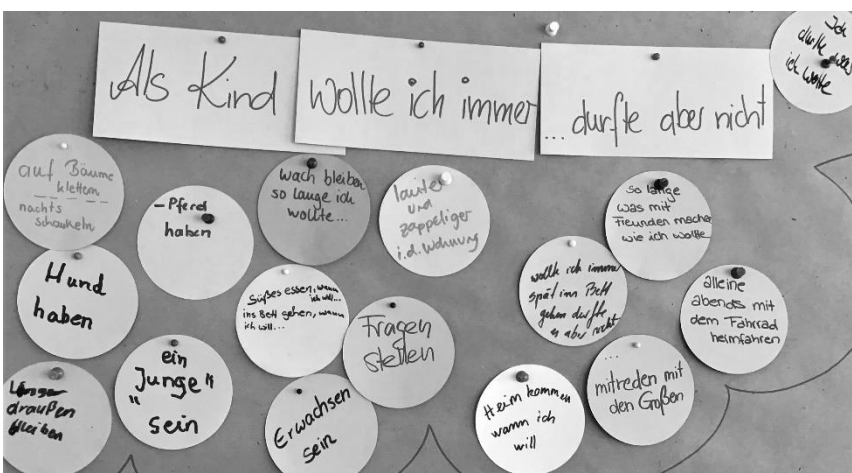 Als Kind wollte ich immer ...durfte aber nicht
Ich
durfte was
ich wollte
auf Bäume
klettern
nachts
schaukeln
- Pferd
haben
wach bleiben
so lange ich
wollte...
lauter
und
zappeliger
i.d. Wohnung
so lange
was mit
Freunden machen
wie ich wollte
Hund
haben
Süßes essen, wann
ich will...
ins Bett gehen, wann
ich will...
Fragen
stellen
wollte ich immer
spät ins Bett
gehen durfte
es aber nicht
alleine
abends mit
dem Fahrrad
heimfahren
Länger
draußen
bleiben
ein
"Junge"
sein
Erwachsen
sein
Heim kommen
wann ich
will
...
mitreden mit
den Großen